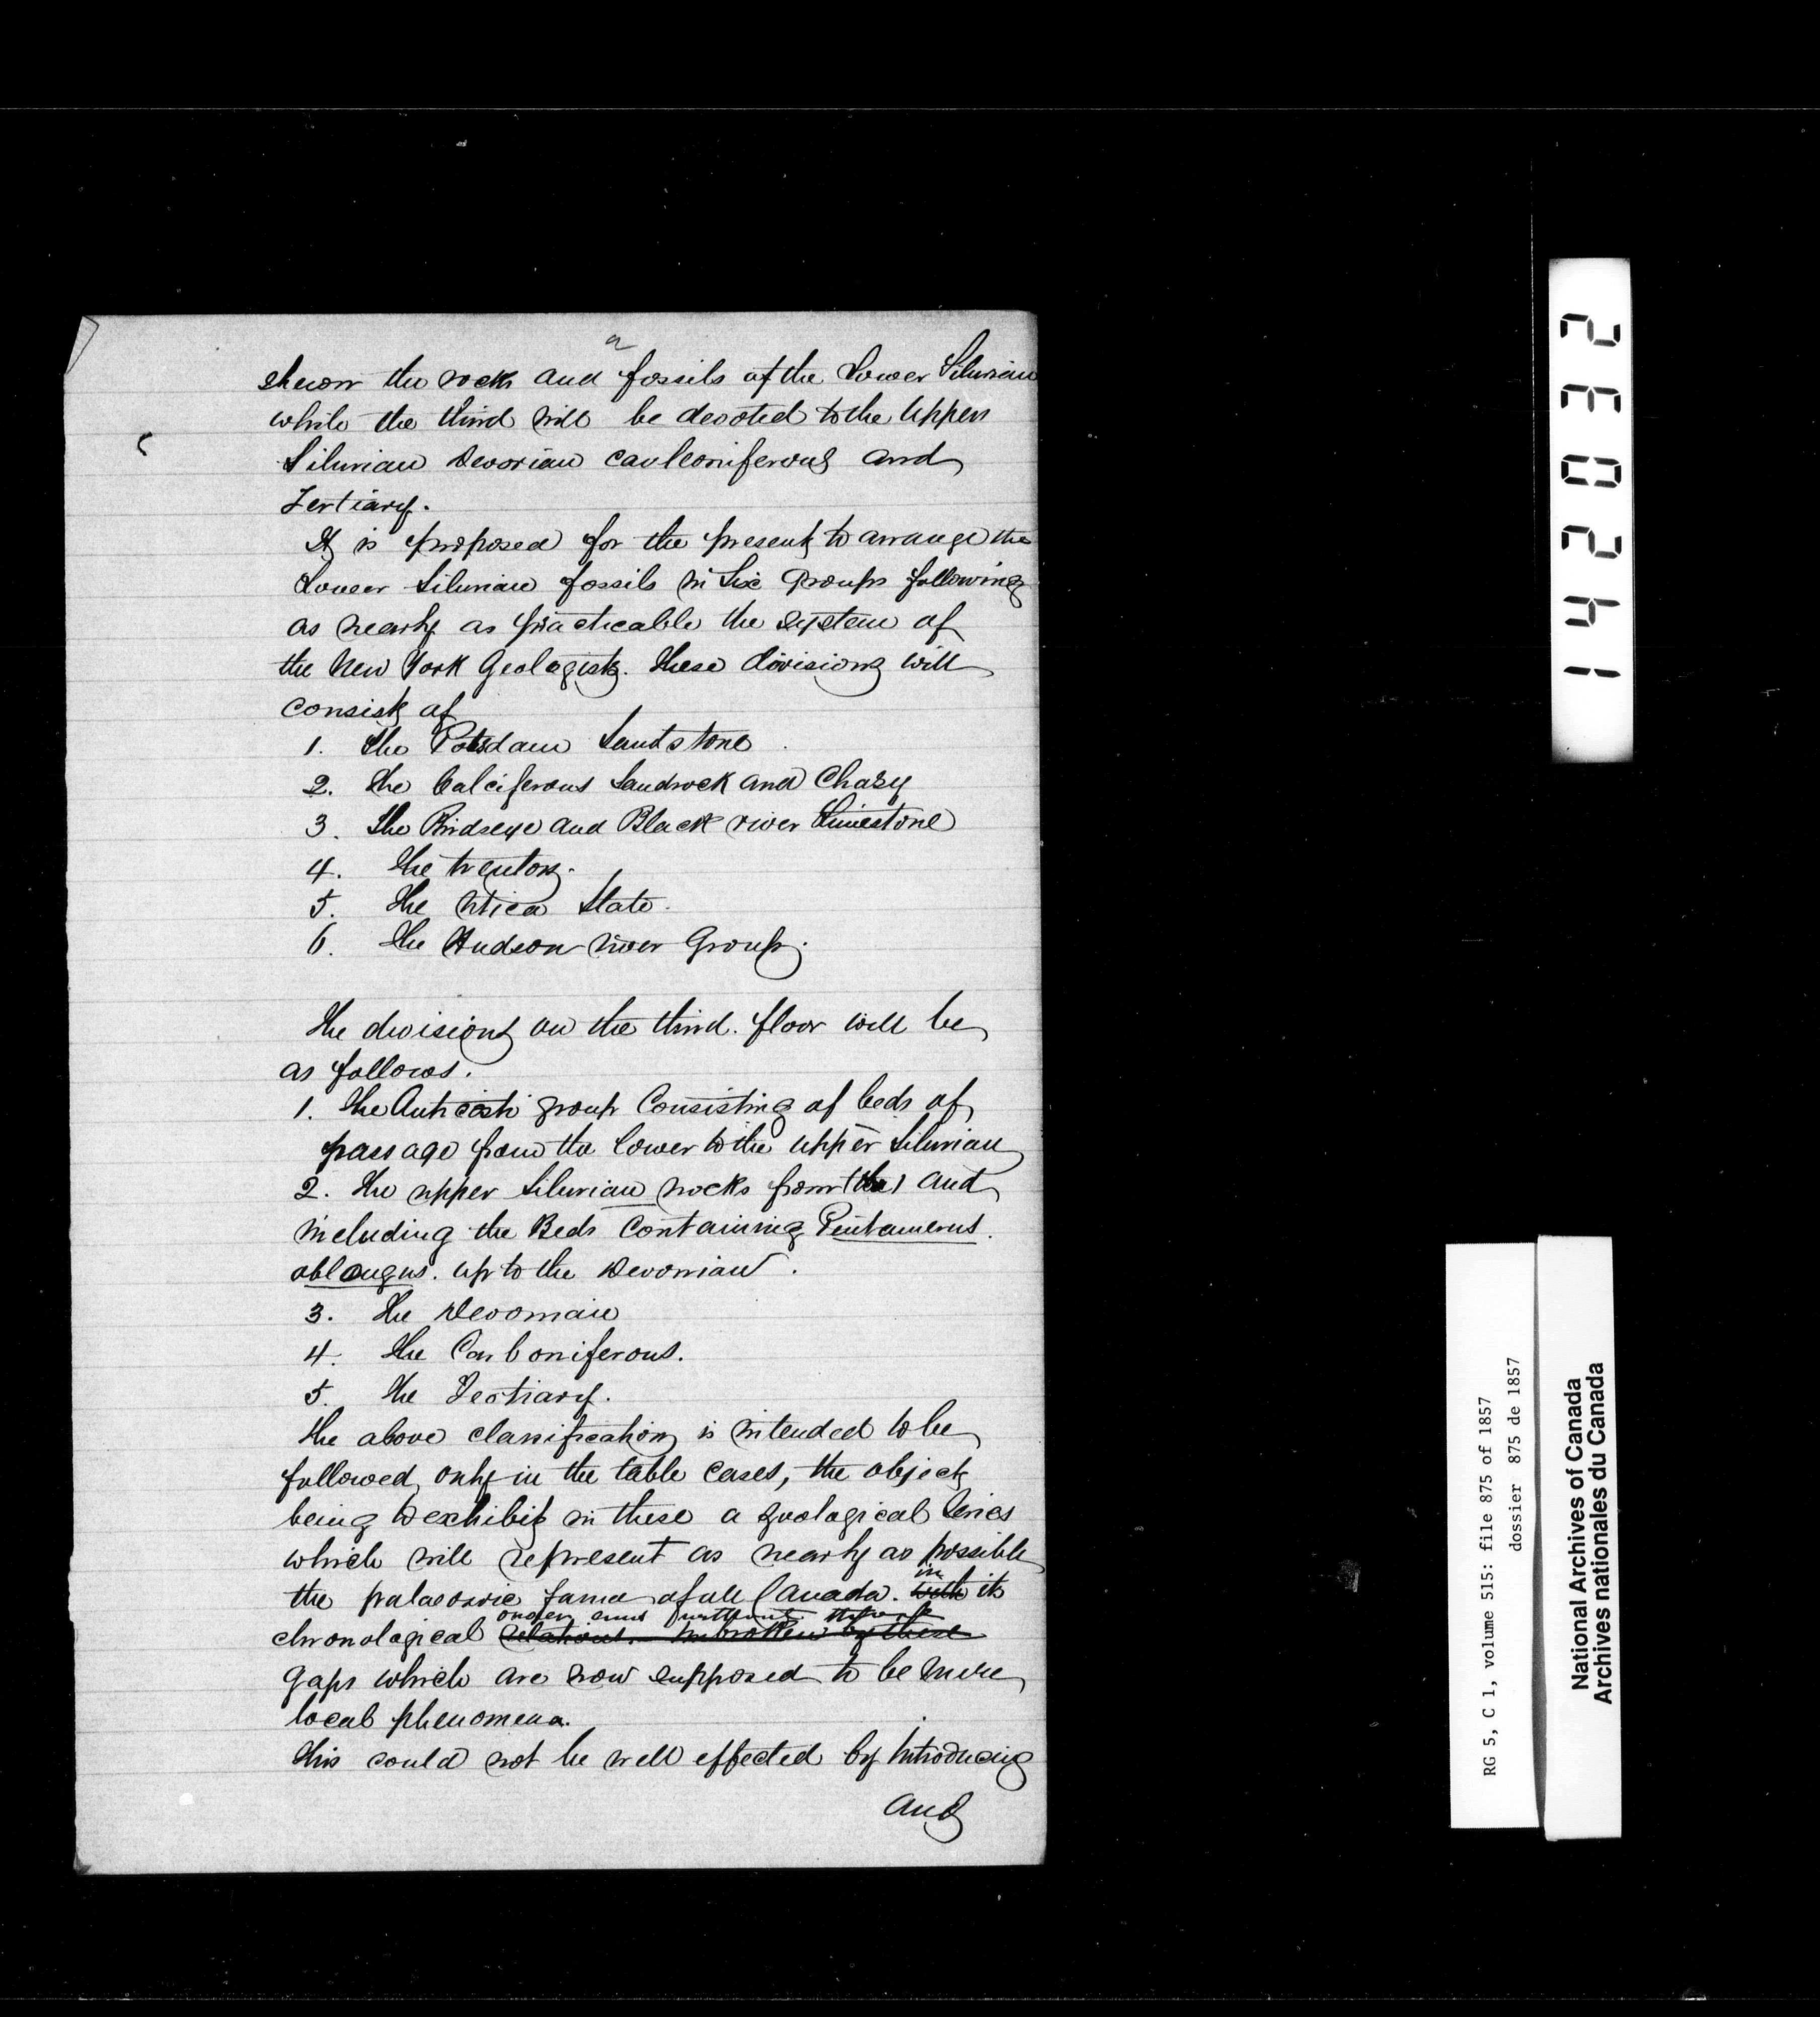 2
shewn the rocks and fossils of the Lower Silurian
while the third will be devoted to the Upper
Silurian Devonian carboniferous and
Tertiary.
It is proposed for the present to arrange the
Lower Silurian fossils in Six Groups following
as nearly as practicable the system of
the New York Geologists. These divisions will
consist of
1. The Potsdam Sandstone
2. The Calciferous Sandrock and Chazy
3. The Birdseye and Black river Limestone
4. The trenton.
5. The Utica Slate.
6. The Hudson river Group.
The divisions on the third. floor will be
as follows.
1. The Anticosti group Consisting of beds of
passage from the lower to the upper Silurian
2. The upper Silurian rocks from (the) and
including the Beds Containing Pentamerus.
oblongus. up to the Devonian.
3. The Devonian
4. The Carboniferous.
5. The Tertiary.
The above classification is intended to be
followed only in the table cases, the object
being to exhibit in these a zoological Series
which will represent as nearly as possible
in
the palaeozoic fauna of all Canada. with its
order and without those
chronological relations. unbroken by these
gaps which are now supposed to be mere
local phenomena.
This could not be well effected by Introducing
and
142032
RG 5, C 1, volume 515: file 875 of 1857
dossier 875 de 1857
National Archives of Canada
Archives nationales du Canada